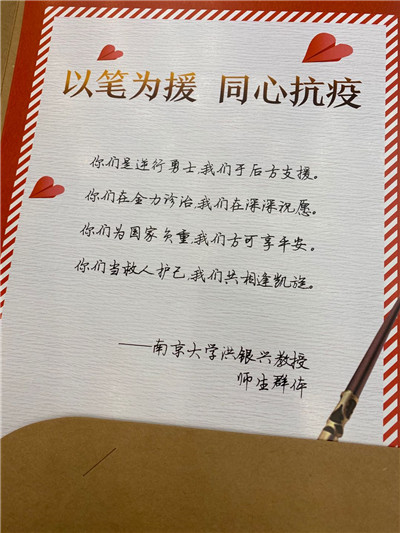 以笔为援 同心抗疫
你们是逆行勇士,我们于后方支援。
你们在全力诊治,我们在深深祝愿。
你们为国家负重,我们方可享平安。
你们当救人护己,我们共相逢凯旋。
——南京大学洪银兴教授
师生群体